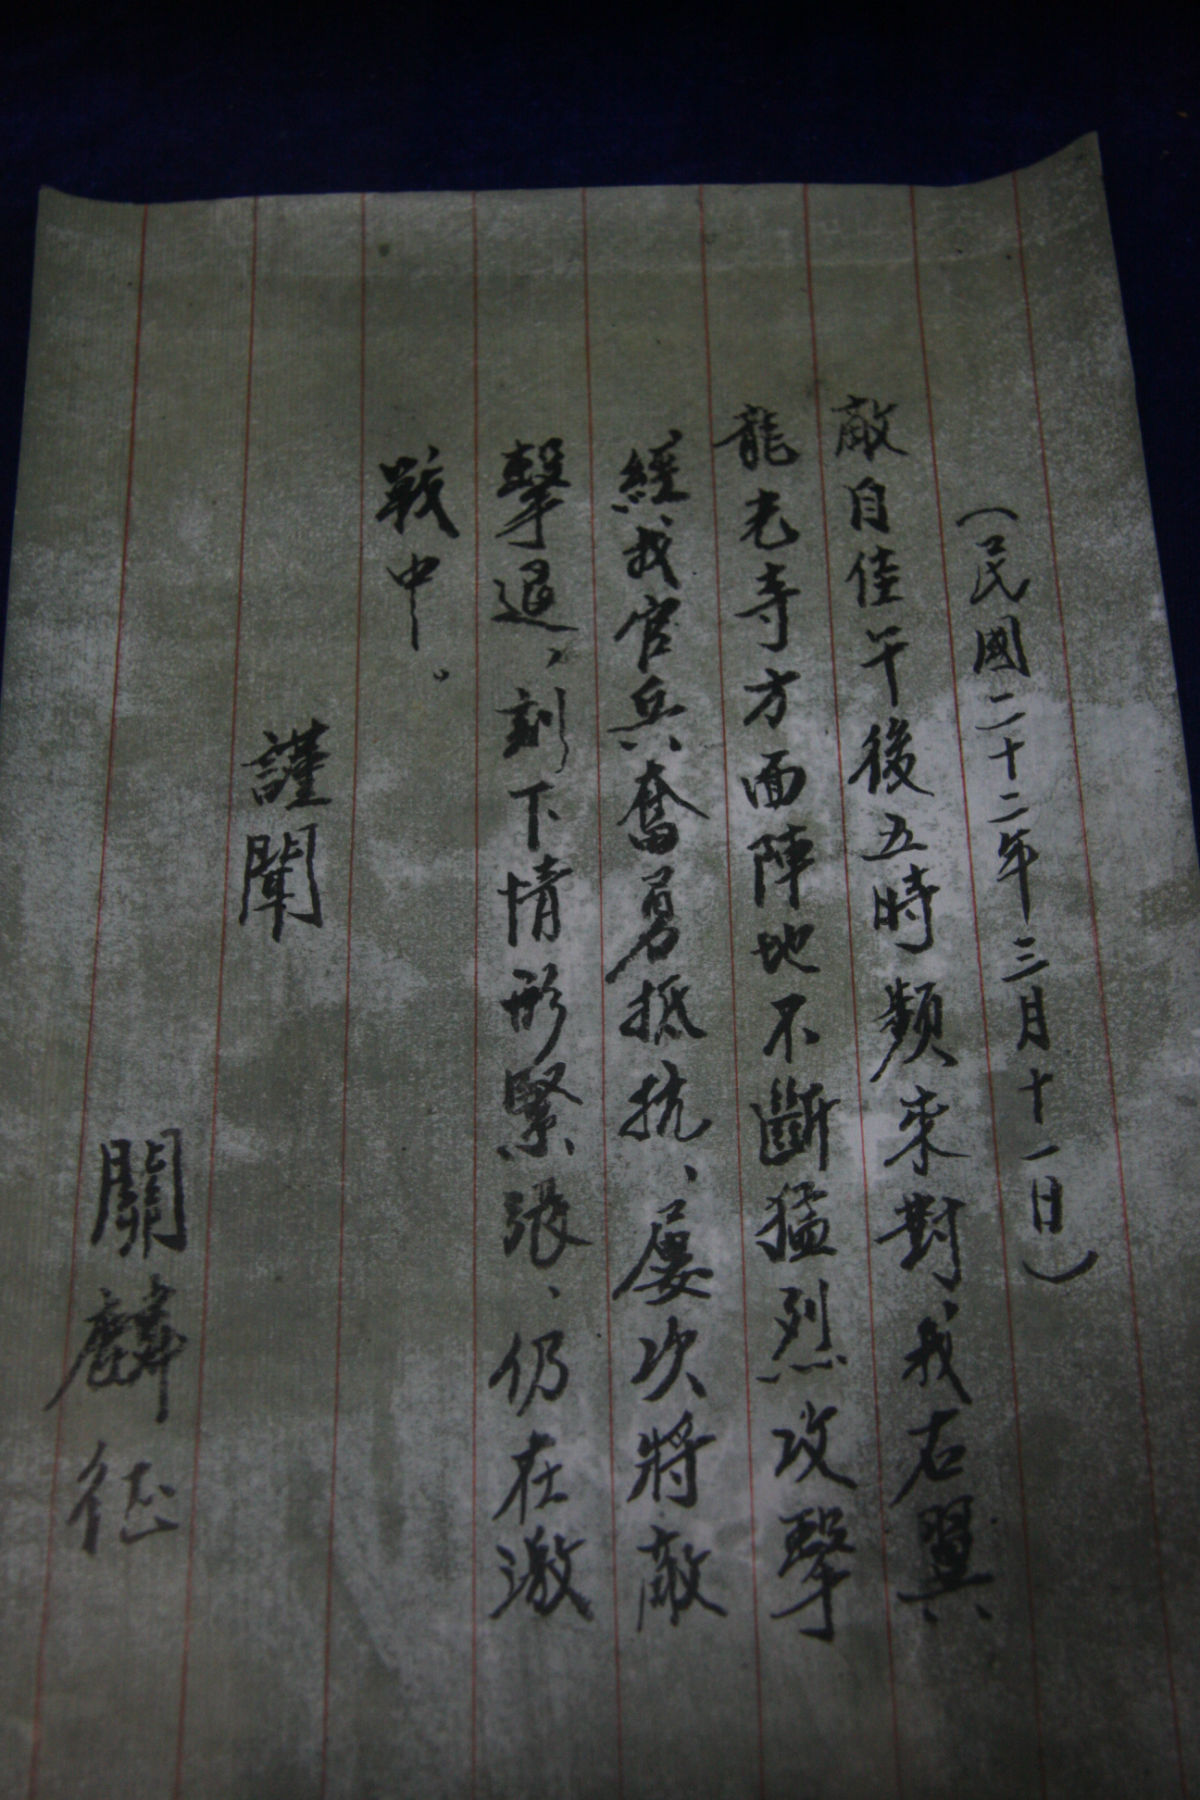 （民國二十二年三月十一日）
敵自佳午後五時類來對我右翼
龍尤寺方面陣地不斷猛烈攻擊
經我官兵奮勇抵抗、屢次將敵
擊退、刻下情形緊張、仍在激
戰中。
謹聞
關麟征